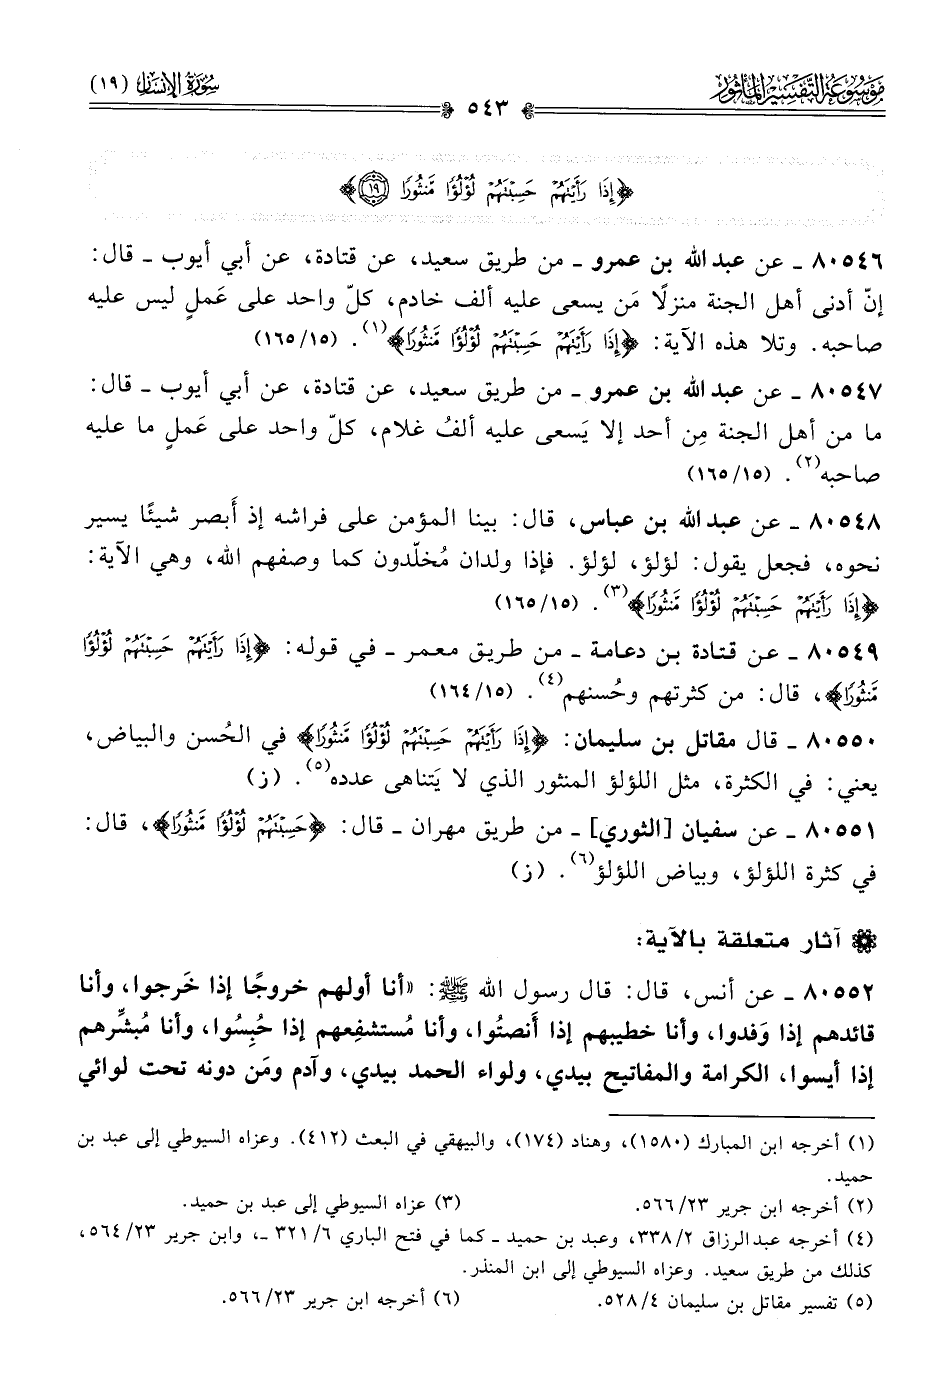 موسوعة التفسير المأثور
سورة الإنسان (١٩)
٥٤٣
﴿إِذَا رَأَيْتَهُمْ حَسِبْتَهُمْ لُؤْلُؤًا مَّنثُورًا ١٩﴾
٨٠٥٤٦ ـ عن عبد الله بن عمرو ـ من طريق سعيد، عن قتادة، عن أبي أيوب ـ قال:
إنّ أدنى أهل الجنة منزلًا مَن يسعى عليه ألف خادم، كلّ واحد على عَملٍ ليس عليه
صاحبه. وتلا هذه الآية: ﴿إِذَا رَأَيْتَهُمْ حَسِبْتَهُمْ لُؤْلُؤًا مَّنثُورًا﴾(١). (١٦٥/١٥)
٨٠٥٤٧ ـ عن عبد الله بن عمرو ـ من طريق سعيد، عن قتادة، عن أبي أيوب ـ قال:
ما من أهل الجنة مِن أحد إلا يَسعى عليه ألفُ غلام، كلّ واحد على عَملٍ ما عليه
صاحبه(٢). (١٦٥/١٥)
٨٠٥٤٨ ـ عن عبد الله بن عباس، قال: بينا المؤمن على فراشه إذ أَبصر شيئًا يسير
نحوه، فجعل يقول: لؤلؤ، لؤلؤ. فإذا ولدان مُخلّدون كما وصفهم الله، وهي الآية:
﴿إِذَا رَأَيْتَهُمْ حَسِبْتَهُمْ لُؤْلُؤًا مَّنثُورًا﴾(٣). (١٦٥/١٥)
٨٠٥٤٩ ـ عن قتادة بن دعامة ـ من طريق معمر ـ في قوله: ﴿إِذَا رَأَيْتَهُمْ حَسِبْتَهُمْ لُؤْلُؤًا
مَّنثُورًا﴾، قال: من كثرتهم وحُسنهم(٤). (١٦٤/١٥)
٨٠٥٥٠ ـ قال مقاتل بن سليمان: ﴿إِذَا رَأَيْتَهُمْ حَسِبْتَهُمْ لُؤْلُؤًا مَّنثُورًا﴾ في الحُسن والبياض،
يعني: في الكثرة، مثل اللؤلؤ المنثور الذي لا يَتناهى عدده(٥). (ز)
٨٠٥٥١ ـ عن سفيان [الثوري] ـ من طريق مهران ـ قال: ﴿حَسِبْتَهُمْ لُؤْلُؤًا مَّنثُورًا﴾، قال:
في كثرة اللؤلؤ، وبياض اللؤلؤ(٦). (ز)
آثار متعلقة بالآية:
٨٠٥٥٢ ـ عن أنس، قال: قال رسول الله ﷺ: «أنا أولهم خروجًا إذا خَرجوا، وأنا
قائدهم إذا وَفدوا، وأنا خطيبهم إذا أَنصتُوا، وأنا مُستشفِعهم إذا حُبِسُوا، وأنا مُبشِّرهم
إذا أيسوا، الكرامة والمفاتيح بيدي، ولواء الحمد بيدي، وآدم ومَن دونه تحت لوائي
(١) أخرجه ابن المبارك (١٥٨٠)، وهناد (١٧٤)، والبيهقي في البعث (٤١٢). وعزاه السيوطي إلى عبد بن
حميد.
(٢) أخرجه ابن جرير ٥٦٦/٢٣.
(٣) عزاه السيوطي إلى عبد بن حميد.
(٤) أخرجه عبدالرزاق ٣٣٨/٢، وعبد بن حميد ـ كما في فتح الباري ٣٢١/٦ ـ، وابن جرير ٥٦٤/٢٣،
كذلك من طريق سعيد. وعزاه السيوطي إلى ابن المنذر.
(٥) تفسير مقاتل بن سليمان ٥٢٨/٤.
(٦) أخرجه ابن جرير ٥٦٦/٢٣.